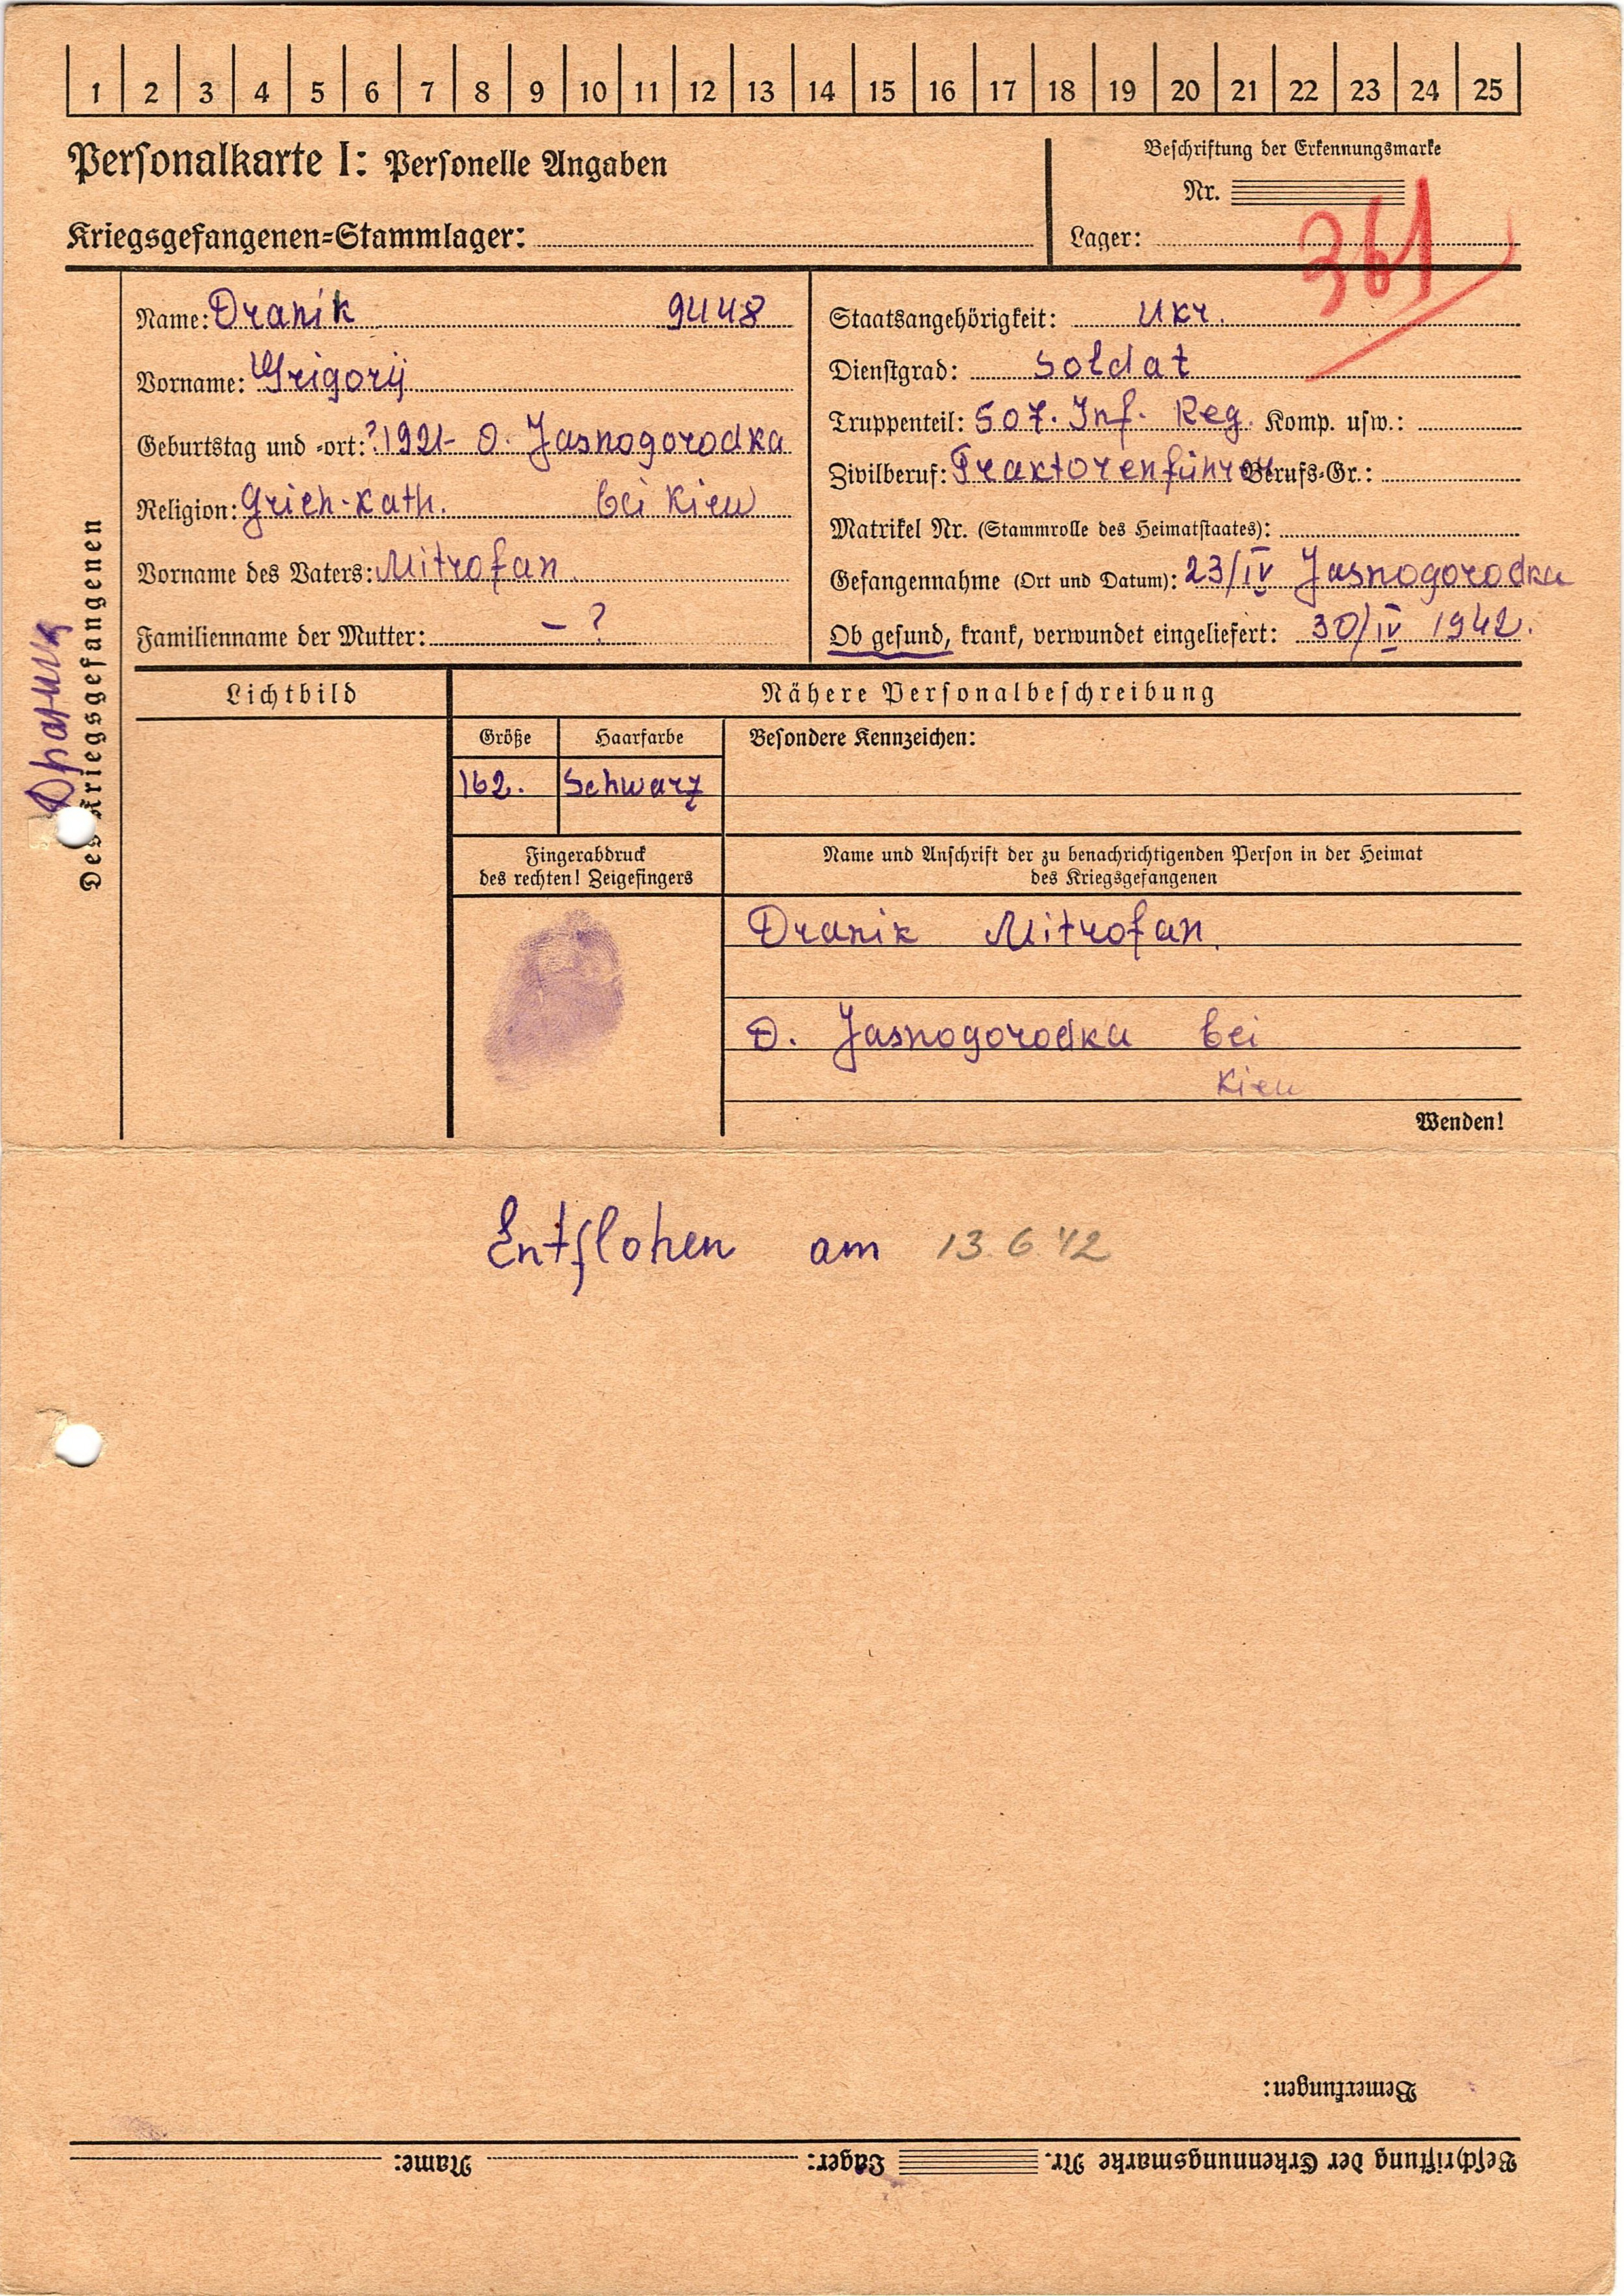 1 2 3 4 5 6 7 8 9 10 11 12 13 14 15 16 17 18 19 20 21 22 23 24 25
Personalkarte I: Personelle Angaben
Kriegsgefangenen-Stammlager:
Beschriftung der Erkennungsmarke
Nr.
Lager:
361
Des Kriegsgefangenen
Name: Dranik 9448
Vorname: Grigorij
Geburtstag und -ort: ? 1921 - D. Jasnogorodka
Religion: Griech-Kath. bei Kiew
Vorname des Vaters: Mitrofan
Familienname der Mutter: - ?
Staatsangehörigkeit: Ukr.
Dienstgrad: Soldat
Truppenteil: 507. Inf. Reg. Komp. usw.:
Zivilberuf: Traktorenführer Berufs-Gr.:
Matrikel Nr. (Stammrolle des Heimatstaates):
Gefangennahme (Ort und Datum): 23/IV Jasnogorodka
Ob gesund, krank, verwundet eingeliefert: 30/IV 1942.
Lichtbild
Nähere Personalbeschreibung
Größe
Haarfarbe
Besondere Kennzeichen:
162.
Schwarz
Fingerabdruck
des rechten! Zeigefingers
Name und Anschrift der zu benachrichtigenden Person in der Heimat
des Kriegsgefangenen
Dranik Mitrofan.
D. Jasnogorodka bei
Kiew
Wenden!
Entflohen am 13.6.42
Bemerkungen:
Beschriftung der Erkennungsmarke Nr. Lager: Name: